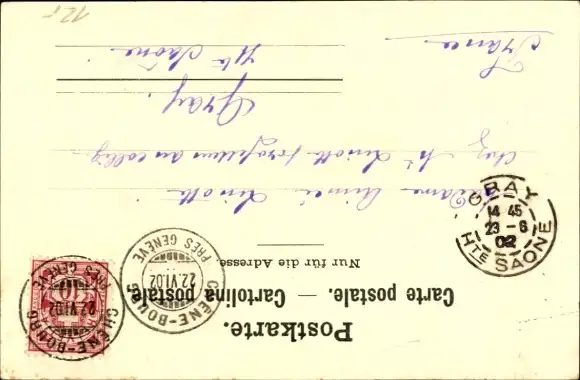 Postkarte.
Carte postale. — Cartolina postale.
Nur für die Adresse.
Madame Aimée Linotte
chez Mr Linotte professeur au collège
Gray
Hte Saône
France
CHÊNE-BOURG
22.VI.02
PRÈS GENÈVE
CHÊNE-BOURG
22.VI.02
PRÈS GENÈVE
10
GRAY
14 45
23 - 6
02
HTE SAÔNE
12.-